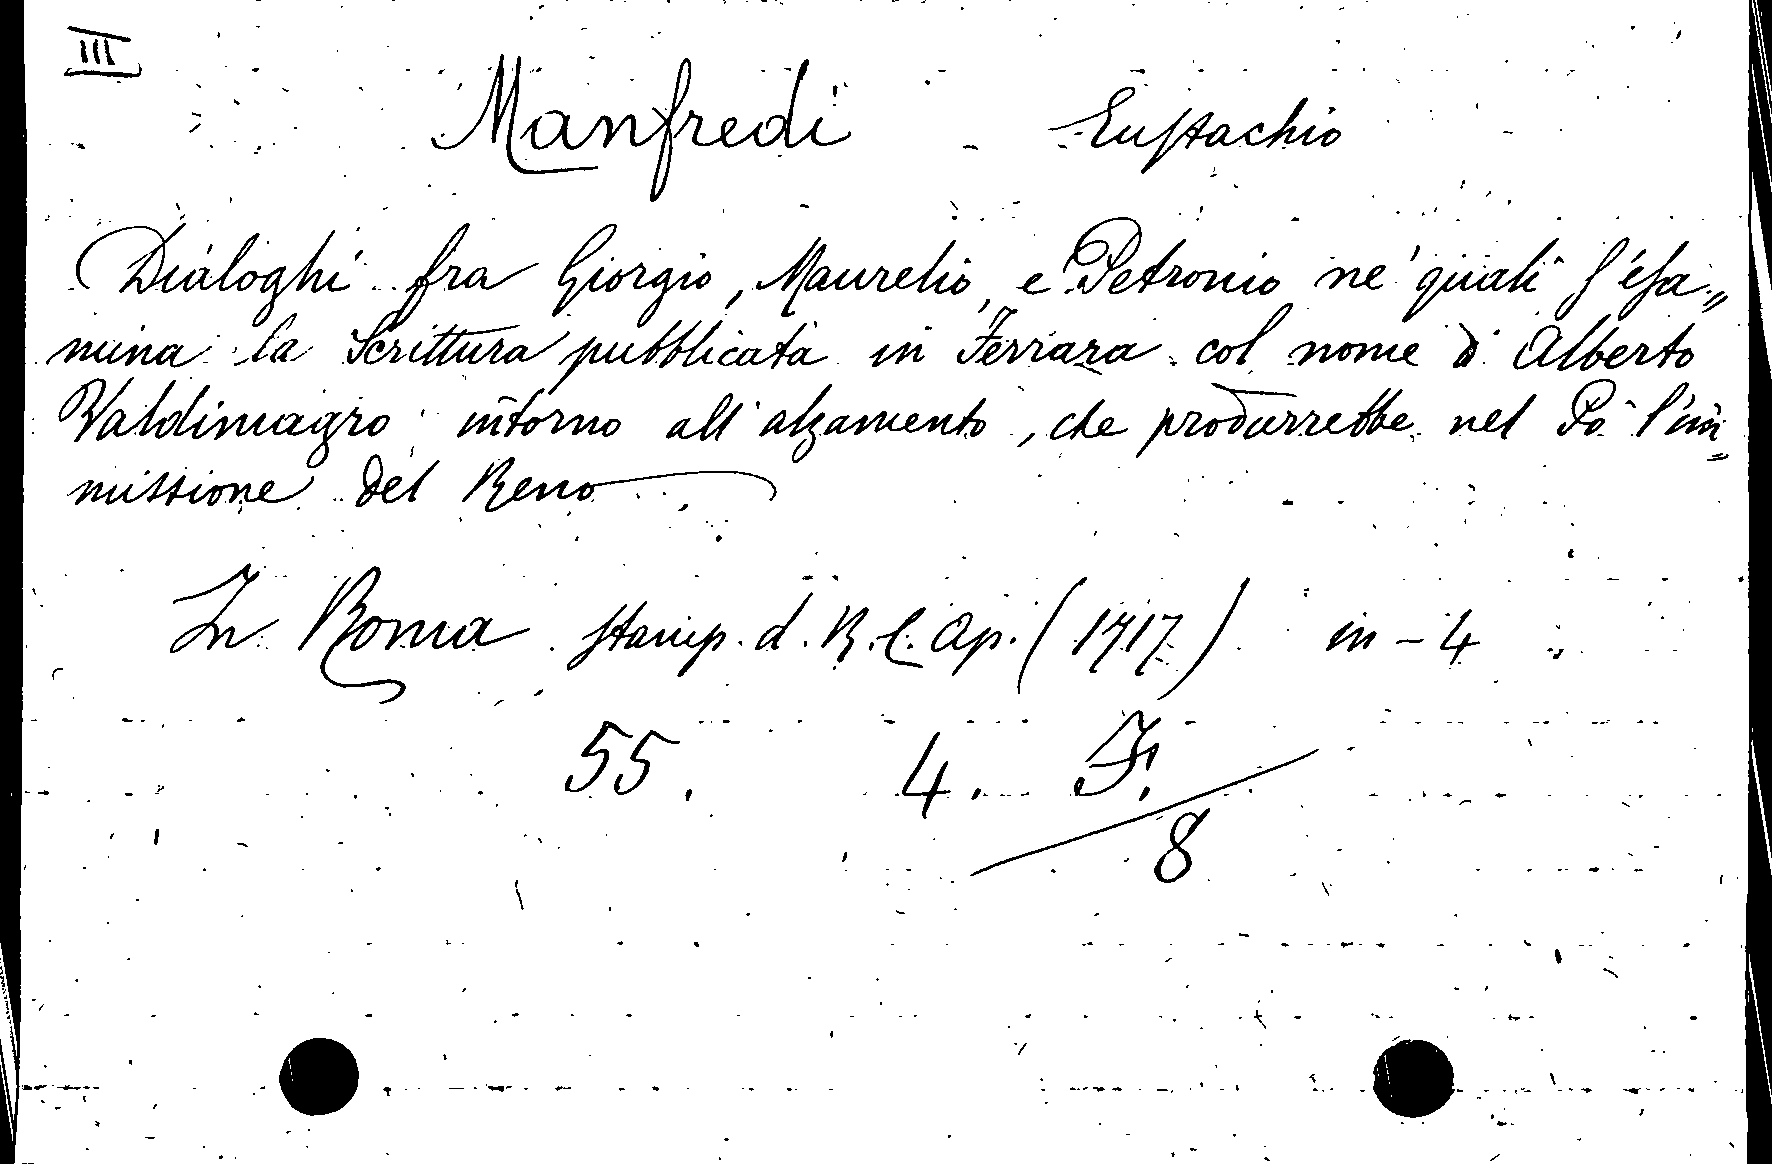 III
Manfredi Eustachio
Dialoghi fra Giorgio, Maurelio, e Petronio ne' quali s'esa„
mina la Scrittura pubblicata in Ferrara col nome di Alberto
Valdimagro intorno all'alzamento, che produrrebbe nel Pò l'im=
missione del Reno
In Roma stamp. d. R. C. Ap. (1717) in-4
55. 4. F.
8